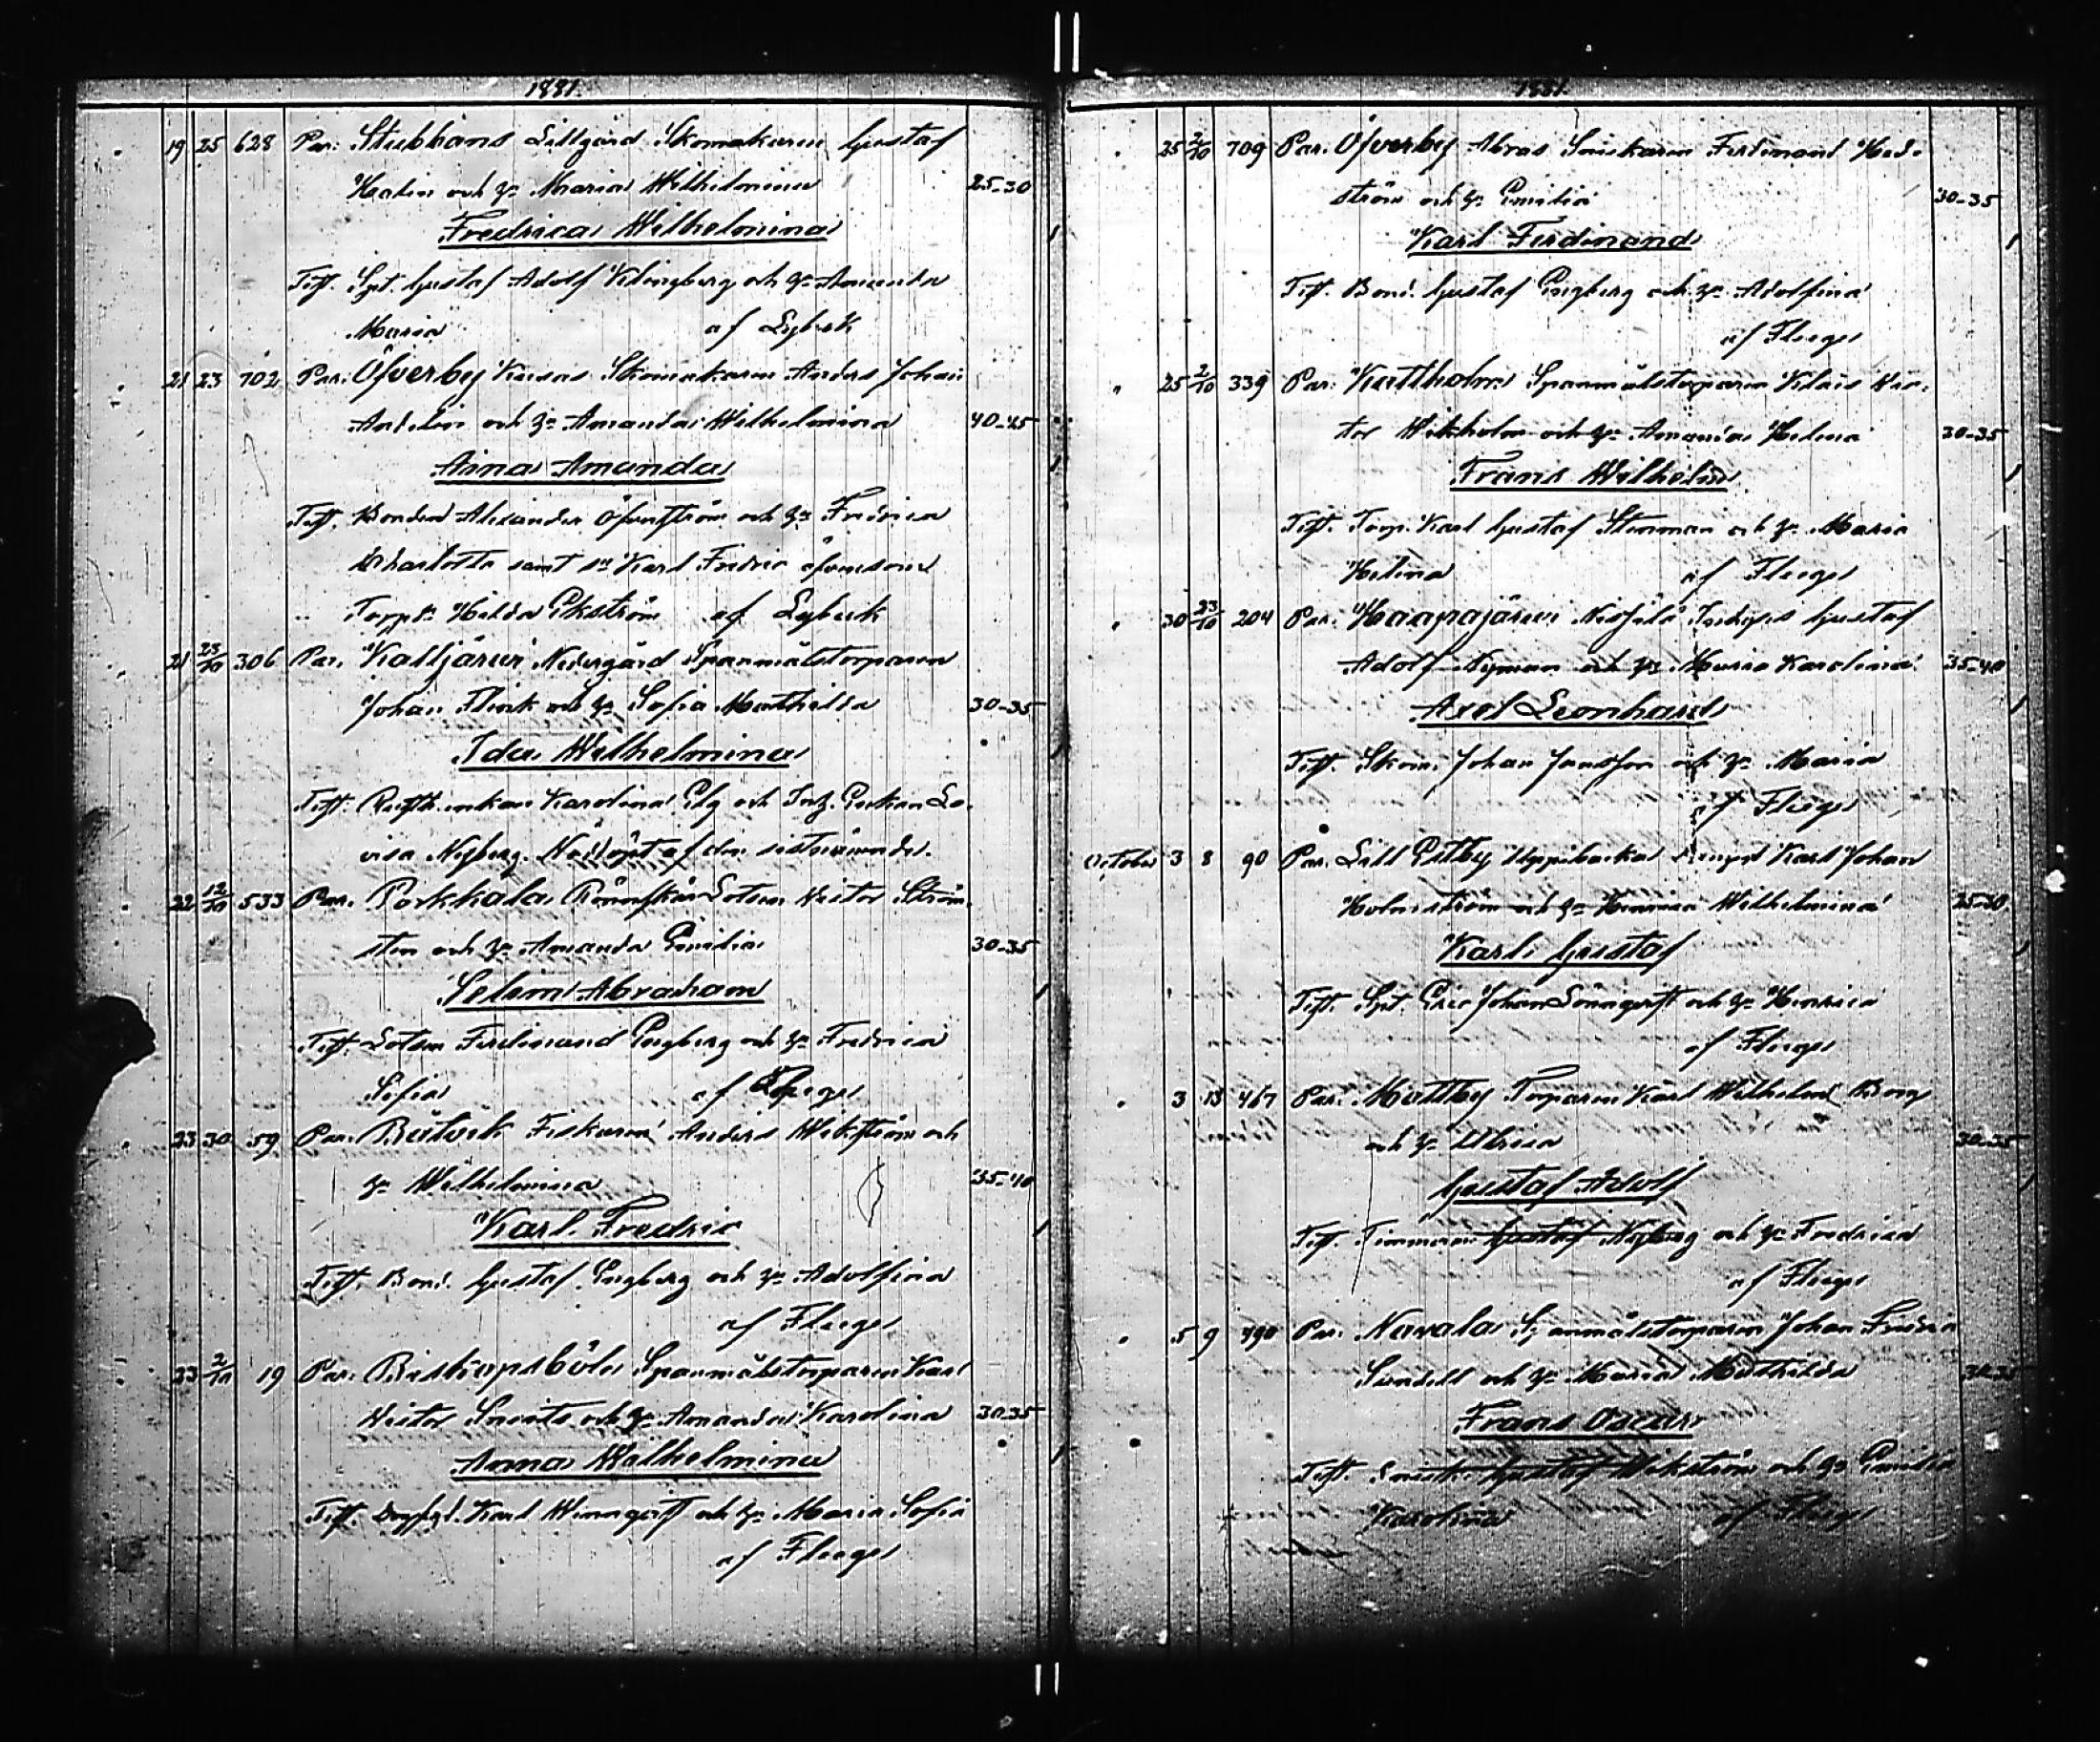 1881.
19 25 628 Par. Stubbans Lillgård Skomakaren Gustaf
Malin och h. Maria Wilhelmina 25-30
Fredrica Wilhelmina
Test. Gustaf Adolf Klingberg och h. Amanda
Maria af Lybeck
21 23 702 Par. Öfverby Skomakaren Anders Johan
och h. Amanda Wilhelmina 40-45
Aina Amanda
Test. Bonden Alexander Öfverström och h. Fredrica
Charlotta samt Karl Fredric
Hilda Ekström af Lybeck
21 23/10 306 Par. Kalljärvi Nedergård Spanmålstorparen
Johan Flinck och h. Sofia Mathilda 30-35
Ida Wilhelmina
Test. enkan Karolina Elg och Enkan Lo-
visa Nyberg. Nöddöpt af den sistnämnda.
22 12/10 533 Par. Porkkala Rönnskär Lotsen Victor Ström-
sten och h. Amanda Emilia 30-35
Selim Abraham
Test. Lotsen Ferdinand Engberg och h. Fredrica
Sofia af Fleege
23 30 59 Par. Båtvik Fiskaren Anders Wikström och
h. Wilhelmina 35-40
Karl Fredric
Test. Bond. Gustaf Engberg och h. Adolfina
af Fleege
23 2/10 19 Par. Biskopsböle Spanmålstorparen Karl
Victor och h. Amanda Karolina 30-35
Anna Wilhelmina
Test. Karl Winnqvist och h. Maria Sofia
af Fleege
1881.
" 25 2/10 709 Par. Öfverby Abras Snickaren Ferdinand Hed-
ström och h. Emilia 30-35
Karl Ferdinand
Test. Bond. Gustaf Engberg och h. Adolfina
af Fleege
" 25 2/10 339 Par. Kattholm Spanmålstorparen Klas Vic-
tor Wikholm och h. Amanda Helena 30-35
Frans Wilhelm
Test. Torp. Karl Gustaf Stenman och h. Maria
Helena af Fleege
" 30 23/10 204 Par. Haapajärvi Gustaf
Adolf Nyman och h. Maria Karolina 35-40
Axel Leonhard
Test. Skom. Johan Jansson och h. Maria
af Fleege
October 3 8 90 Par. Lill Estby Uppibacka Karl Johan
Holmström och h. Wilhelmina 25-30
Karl Gustaf
Test. Eric Johan Lönnqvist och h. Henrica
af Fleege
" 3 13 467 Par. Mattby Torparen Karl Wilhelm Borg
och h. Ulrica 30-35
Gustaf Adolf
Test. Timmerm. Gustaf Nyberg och h. Fredrica
af Fleege
" 5 9 490 Par. Navala Spanmålstorparen Johan Fredric
Sundell och h. Maria Mathilda 30-35
Frans Oscar
Test. Snick. Gustaf Wikström och h. Emilia
Karolina af Fleege